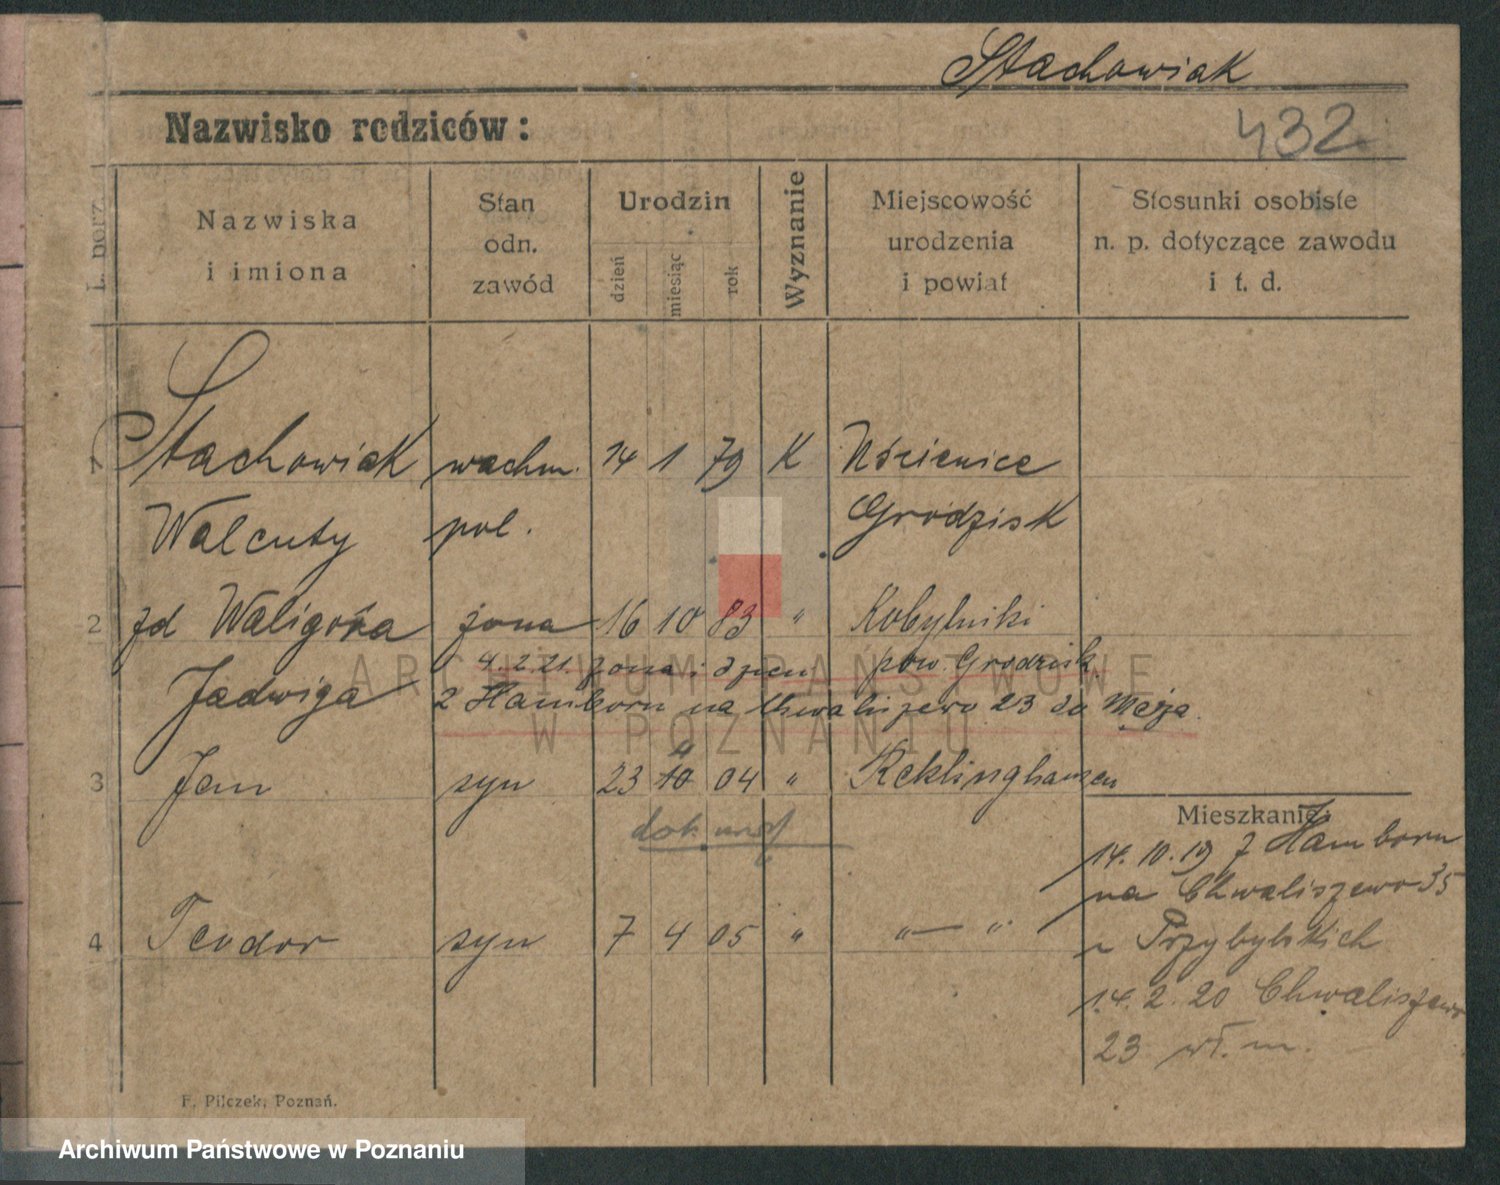 Stachowiak
Nazwisko rodziców:
432
L. porz.
Nazwiska
i imiona
Stan
odn.
zawód
Urodzin
dzień
miesiąc
rok
Wyznanie
Miejscowość
urodzenia
i powiat
Stosunki osobiste
n. p. dotyczące zawodu
i t. d.
1 Stachowiak wachm. 14 1 79 K
Walenty pol. Grodzisk
2 zd Waligóra żona 16 10 83 " Kobylniki
4.2.21. żona i pow. Grodzisk
Jadwiga
z Hamborn na Chwaliszewo 23 do męża
3 Jan syn 23 10 04 " Recklinghausen
dok. urodz
Mieszkanie:
14.10.19 z Hamborn
na Chwaliszewo 35
u Przybylskich
4 Teodor syn 7 4 05 " " — "
14.2.20 Chwaliszewo
23 wł. m.
F. Pilczek, Poznań.
ARCHIWUM PAŃSTWOWE
W POZNANIU
Archiwum Państwowe w Poznaniu